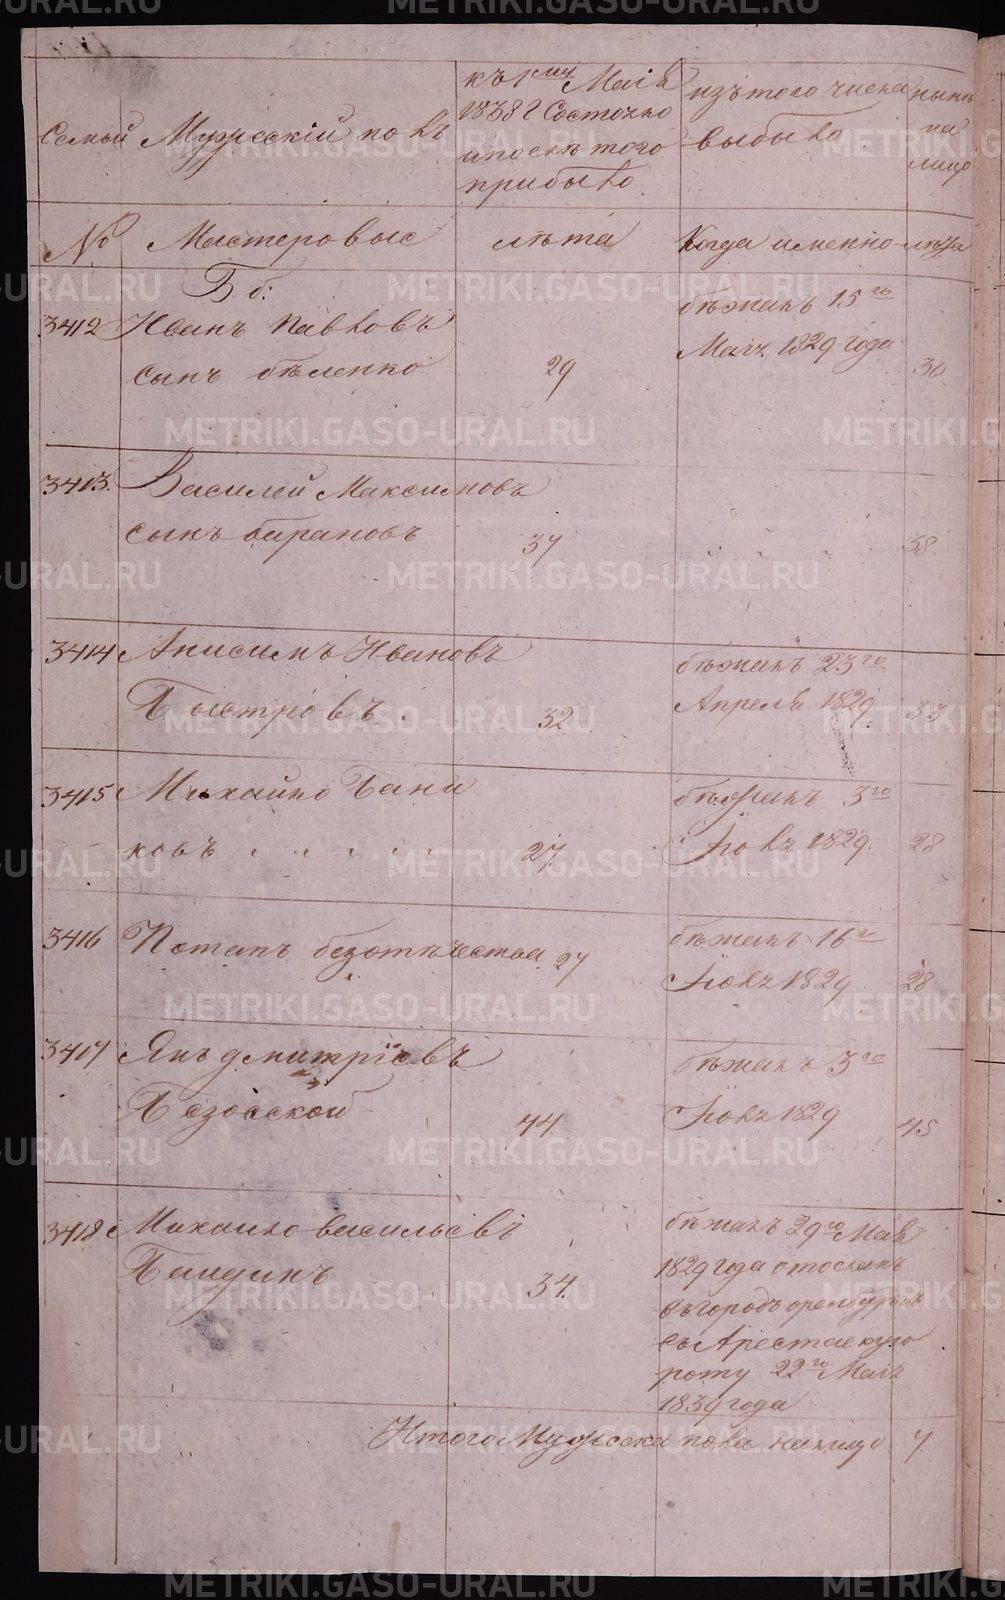 семьи
Мужескій полъ
къ 1му Маія
1838 г Состояло
и послѣ того
прибыло
изъ того числа
выбыло
нынѣ
на
лицо
№
Мастеровые
лѣта
Когда именно
лѣта
Бб:
3412 Иванъ Павловъ
сынъ бѣленко
29
бѣжалъ 15го
Маія 1829 года
30
3413. Василей Максимовъ
сынъ барановъ
37
38
3414 Анисимъ Ивановъ
Быстровъ.
32
бѣжалъ 23го
Апреля 1829
33
3415 Михайло Бани
ковъ . . . . .
27.
бѣжалъ 3го
Іюля 1829.
28
3416 Потапъ безотчества
27
бѣжалъ 16г
Іюля 1829
28
3417 Янъ дмитріевъ
44
бѣжалъ 3го
Іюля 1829
45
3418 Михаило васильевъ
34.
бѣжалъ 29го Маія
1829 года отосланъ
въ городъ оренбургъ
въ Арестанскую
роту 22го Маія
1839 года
Итого Мужеска пола налицо 7
METRIKI.GASO-URAL.RU